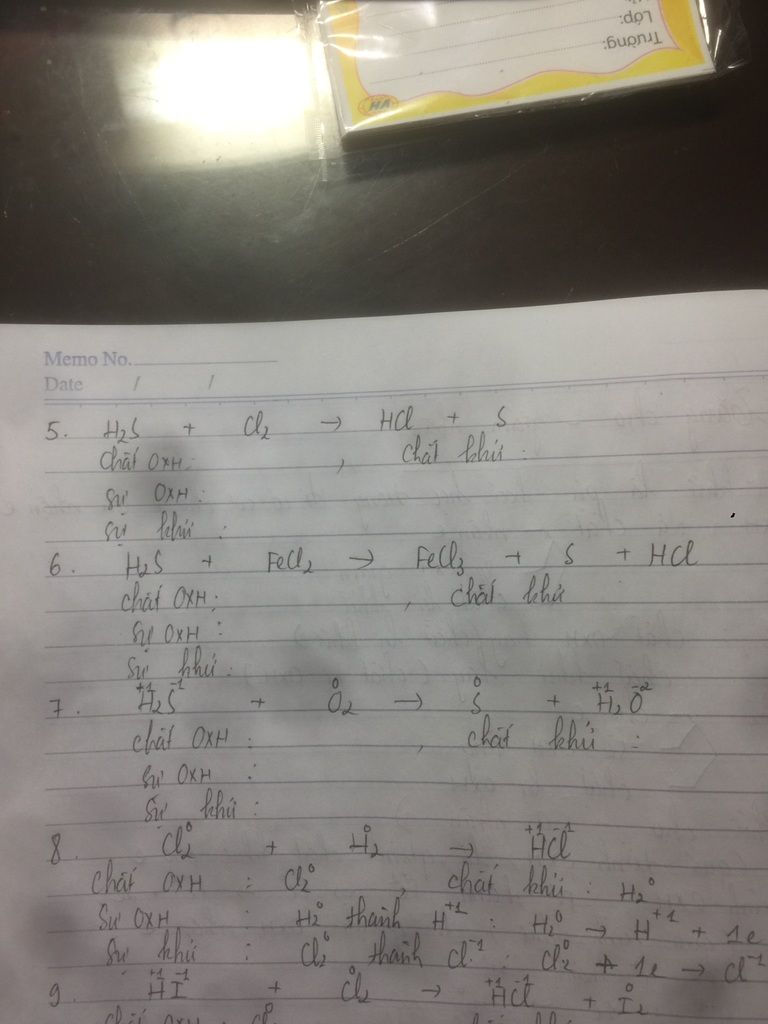 Trường:
Lớp:
HA
Memo No.
Date / /
5. H₂S + Cl₂ → HCl + S
Chất OXH: , chất khử:
Sự OXH:
Sự khử:
6. H₂S + FeCl₂ → FeCl₃ + S + HCl
chất OXH: , chất khử
Sự OXH:
Sự khử:
7. H₂⁺¹S⁻¹ + O₂⁰ → S⁰ + H₂⁺¹O⁻²
chất OXH: , chất khử:
Sự OXH:
Sự khử:
8. Cl₂⁰ + H₂⁰ → H⁺¹Cl⁻¹
chất OXH: Cl₂⁰, chất khử: H₂⁰
Sự OXH: H₂⁰ thành H⁺¹: H₂⁰ → H⁺¹ + 1e
Sự khử: Cl₂⁰ thành Cl⁻¹: Cl₂⁰ + 1e → Cl⁻¹
9. H⁺¹I⁻¹ + Cl₂⁰ → H⁺¹Cl⁻¹ + I₂⁰